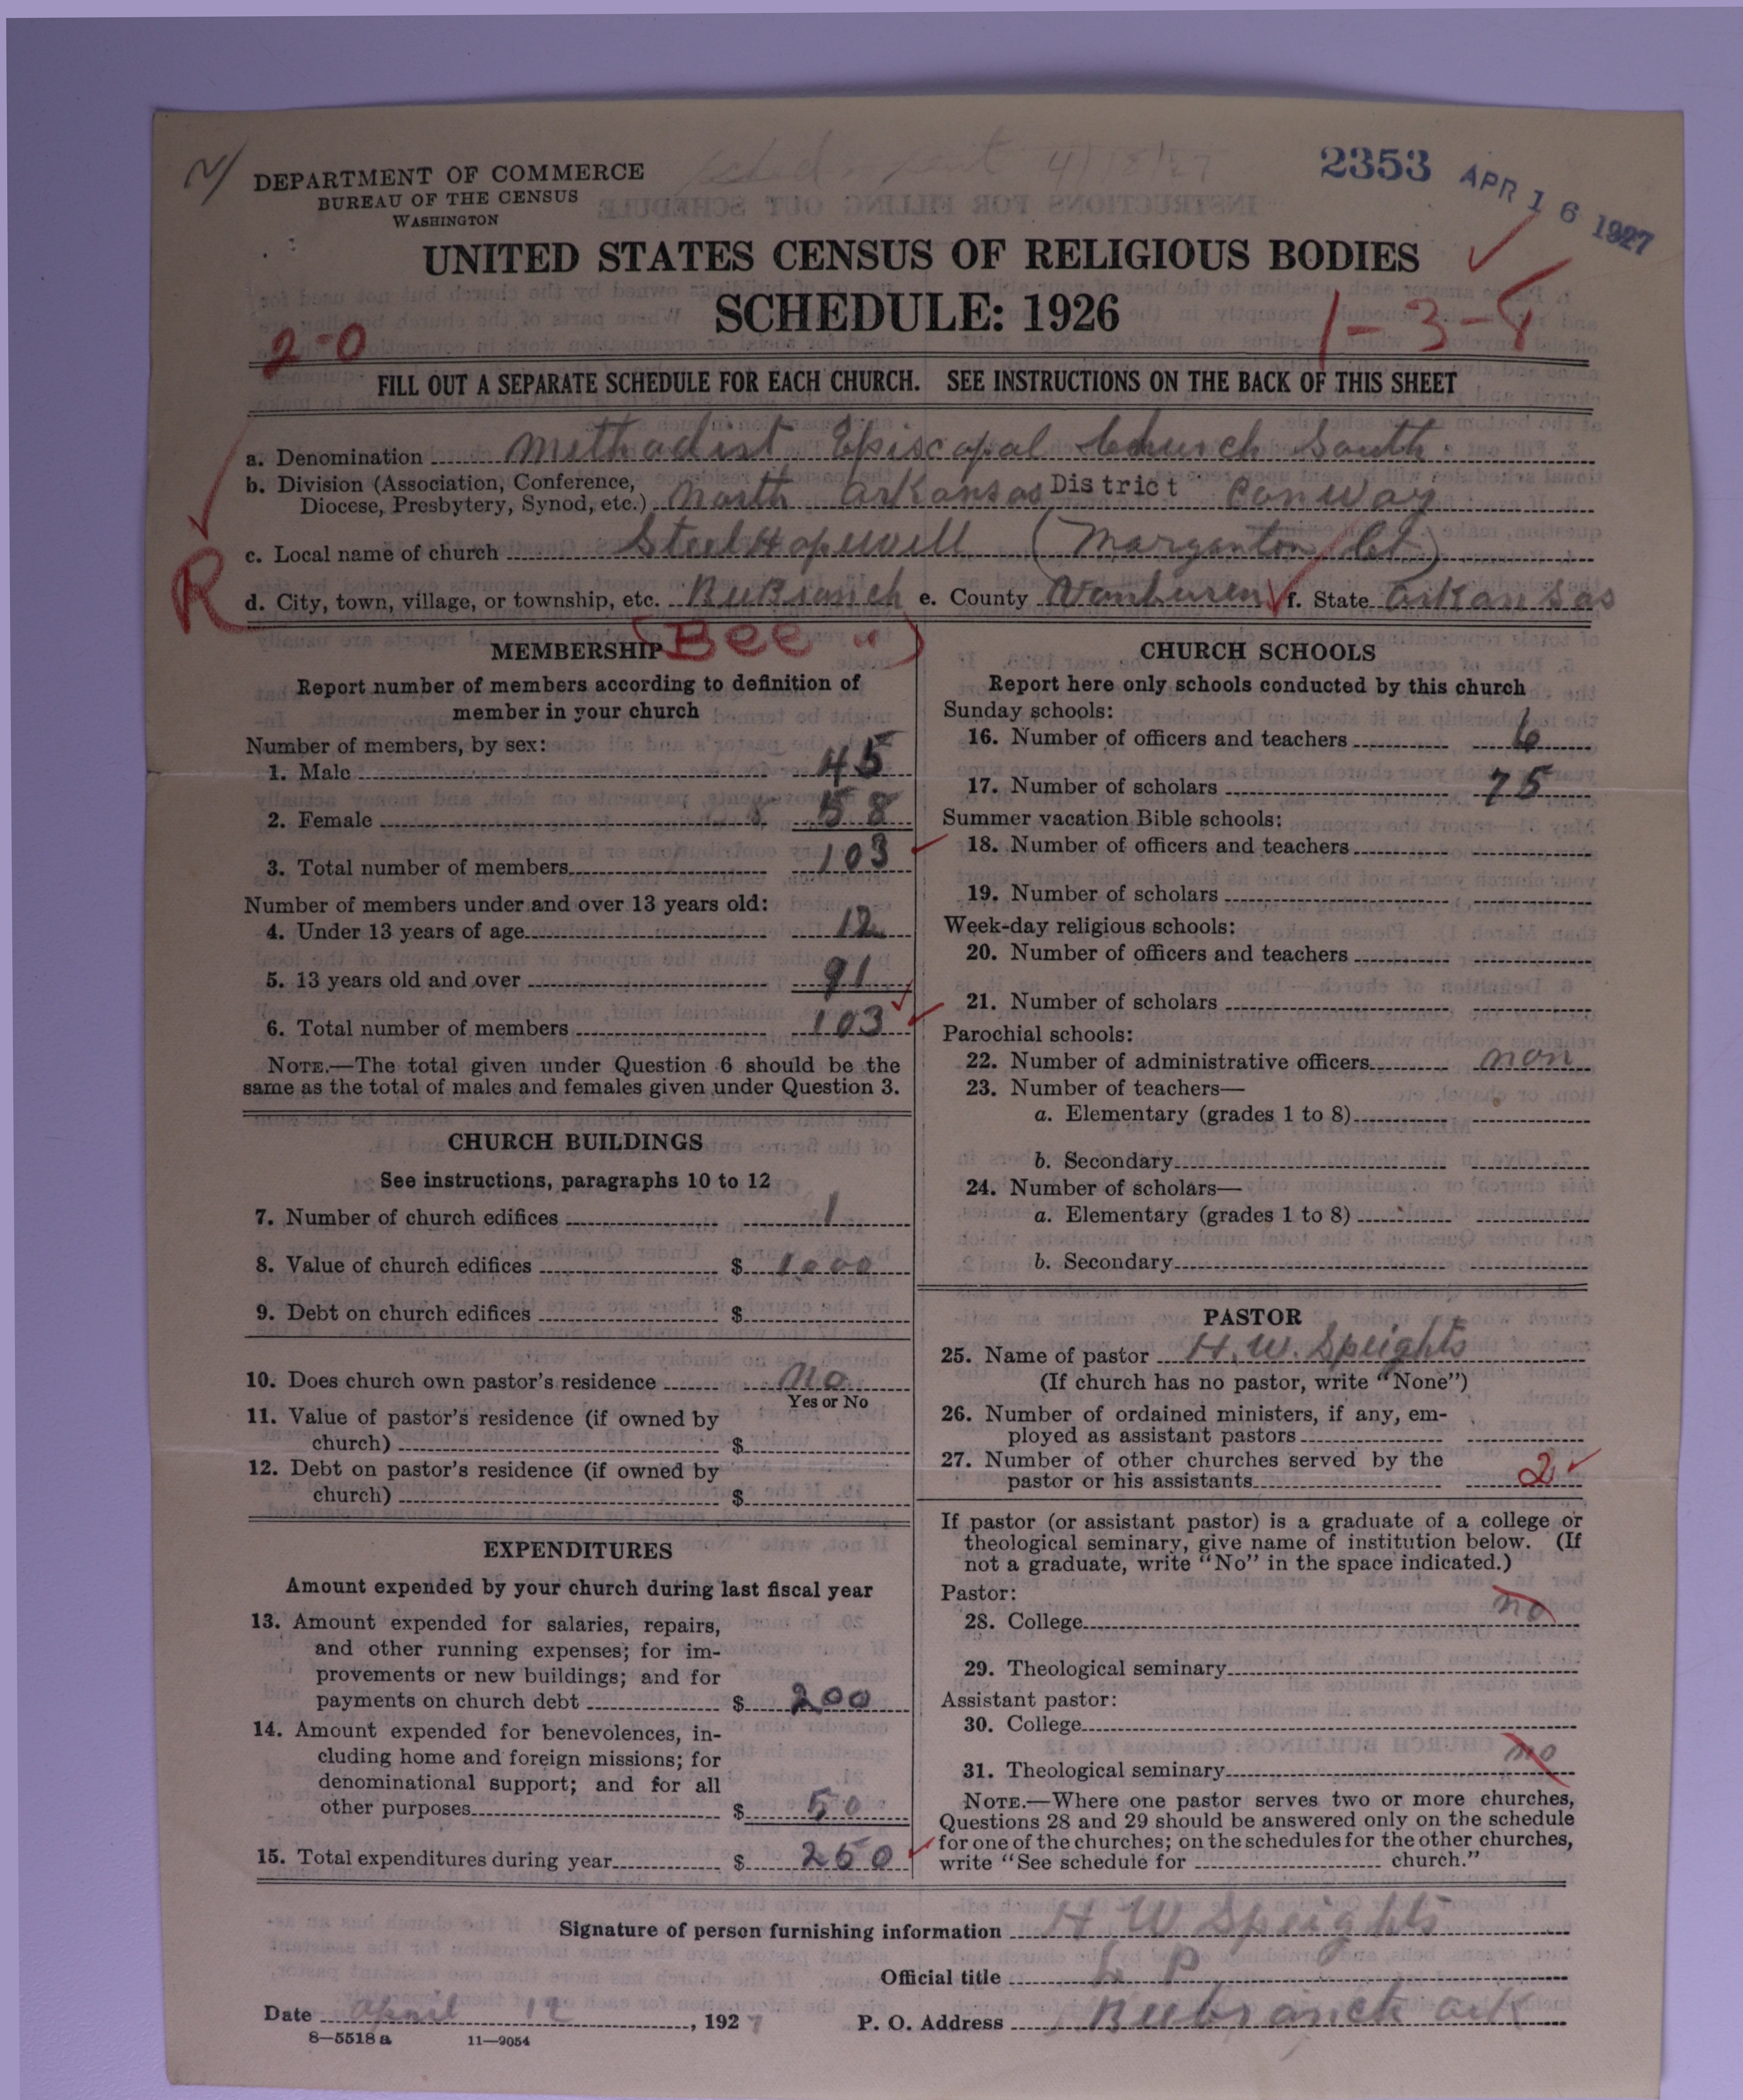 N/
DEPARTMENT OF COMMERCE
BUREAU OF THE CENSUS
WASHINGTON
4/18/27
2353 APR 16 1927
UNITED STATES CENSUS OF RELIGIOUS BODIES
SCHEDULE: 1926
2-0
1-3-8
FILL OUT A SEPARATE SCHEDULE FOR EACH CHURCH. SEE INSTRUCTIONS ON THE BACK OF THIS SHEET
a. Denomination Methodist Episcopal Church South
b. Division (Association, Conference, Diocese, Presbytery, Synod, etc.) North Arkansas District Conway
c. Local name of church Steel Hopewell (Morganton Ct)
R
d. City, town, village, or township, etc. BeeBranch e. County Vanburen f. State Arkansas
(Bee ")
MEMBERSHIP
Report number of members according to definition of
member in your church
Number of members, by sex:
1. Male 45
2. Female 58
3. Total number of members 103
Number of members under and over 13 years old:
4. Under 13 years of age 12
5. 13 years old and over 91
6. Total number of members 103
NOTE.—The total given under Question 6 should be the
same as the total of males and females given under Question 3.
CHURCH BUILDINGS
See instructions, paragraphs 10 to 12
7. Number of church edifices 1
8. Value of church edifices $ 1000
9. Debt on church edifices $
10. Does church own pastor's residence No
Yes or No
11. Value of pastor's residence (if owned by
church) $
12. Debt on pastor's residence (if owned by
church) $
EXPENDITURES
Amount expended by your church during last fiscal year
13. Amount expended for salaries, repairs,
and other running expenses; for im-
provements or new buildings; and for
payments on church debt $ 200
14. Amount expended for benevolences, in-
cluding home and foreign missions; for
denominational support; and for all
other purposes $ 50
15. Total expenditures during year $ 250
CHURCH SCHOOLS
Report here only schools conducted by this church
Sunday schools:
16. Number of officers and teachers 6
17. Number of scholars 75
Summer vacation Bible schools:
18. Number of officers and teachers
19. Number of scholars
Week-day religious schools:
20. Number of officers and teachers
21. Number of scholars
Parochial schools:
22. Number of administrative officers non
23. Number of teachers—
a. Elementary (grades 1 to 8)
b. Secondary
24. Number of scholars—
a. Elementary (grades 1 to 8)
b. Secondary
PASTOR
25. Name of pastor H. W. Speights
(If church has no pastor, write "None")
26. Number of ordained ministers, if any, em-
ployed as assistant pastors
27. Number of other churches served by the
pastor or his assistants 2
If pastor (or assistant pastor) is a graduate of a college or
theological seminary, give name of institution below. (If
not a graduate, write "No" in the space indicated.)
Pastor:
28. College no
29. Theological seminary
Assistant pastor:
30. College
31. Theological seminary no
NOTE.—Where one pastor serves two or more churches,
Questions 28 and 29 should be answered only on the schedule
for one of the churches; on the schedules for the other churches,
write "See schedule for church."
Signature of person furnishing information H W Speights
Official title L P
Date April 12, 1927 P. O. Address Beebranch ark
8—5518 a 11—9054